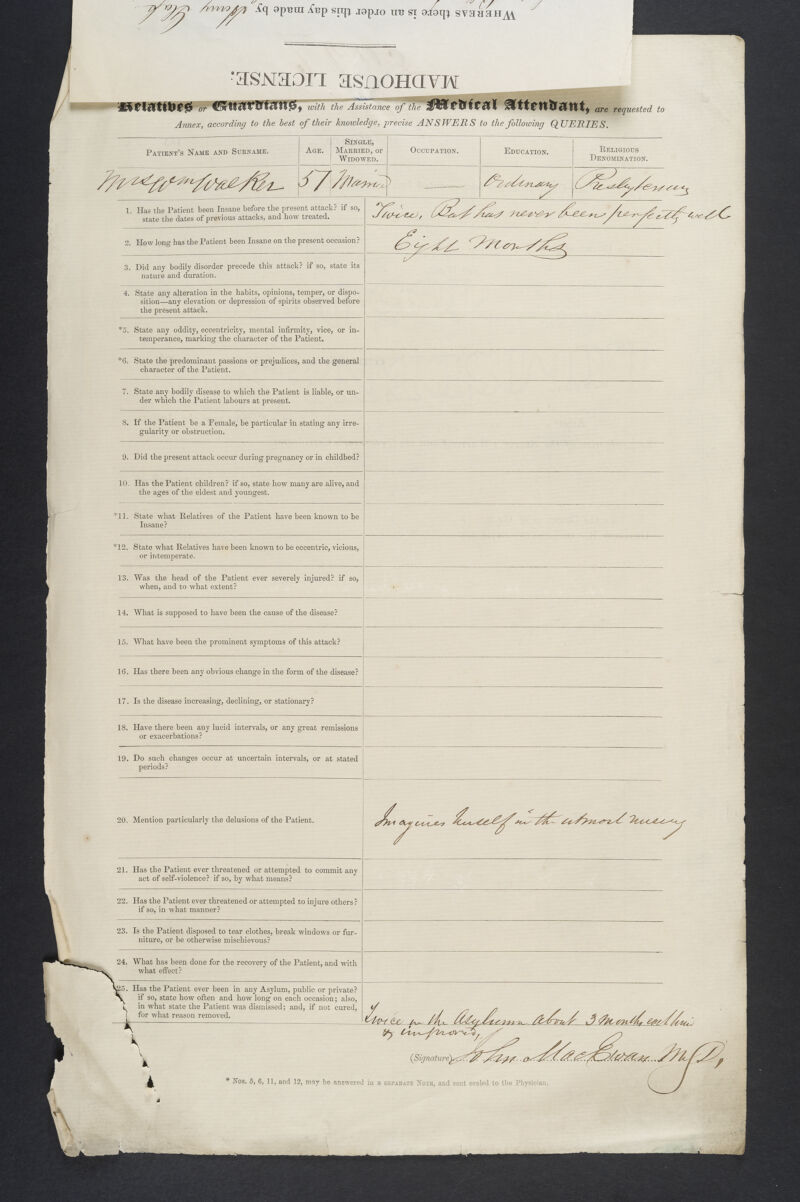 WHEREAS there is an order this day made by Henry
MADHOUSE LICENSE.
Relatives or Guardians, with the Assistance of the Medical Attendant, are requested to
Annex, according to the best of their knowledge, precise ANSWERS to the following QUERIES.
PATIENT'S NAME AND SURNAME. AGE. SINGLE, MARRIED, OR WIDOWED. OCCUPATION. EDUCATION. RELIGIOUS DENOMINATION.
Mrs Wm Walker 57 Married — Ordinary Presbyterian
1. Has the Patient been Insane before the present attack? if so, Twice, But has never been perfectly well
state the dates of previous attacks, and how treated.
2. How long has the Patient been Insane on the present occasion? Eight Months
3. Did any bodily disorder precede this attack? if so, state its
nature and duration.
4. State any alteration in the habits, opinions, temper, or dispo-
sition—any elevation or depression of spirits observed before
the present attack.
*5. State any oddity, eccentricity, mental infirmity, vice, or in-
temperance, marking the character of the Patient.
*6. State the predominant passions or prejudices, and the general
character of the Patient.
7. State any bodily disease to which the Patient is liable, or un-
der which the Patient labours at present.
8. If the Patient be a Female, be particular in stating any irre-
gularity or obstruction.
9. Did the present attack occur during pregnancy or in childbed?
10. Has the Patient children? if so, state how many are alive, and
the ages of the eldest and youngest.
*11. State what Relatives of the Patient have been known to be
Insane?
*12. State what Relatives have been known to be eccentric, vicious,
or intemperate.
13. Was the head of the Patient ever severely injured? if so,
when, and to what extent?
14. What is supposed to have been the cause of the disease?
15. What have been the prominent symptoms of this attack?
16. Has there been any obvious change in the form of the disease?
17. Is the disease increasing, declining, or stationary?
18. Have there been any lucid intervals, or any great remissions
or exacerbations?
19. Do such changes occur at uncertain intervals, or at stated
periods?
20. Mention particularly the delusions of the Patient. Imagines herself in the utmost misery
21. Has the Patient ever threatened or attempted to commit any
act of self-violence? if so, by what means?
22. Has the Patient ever threatened or attempted to injure others?
if so, in what manner?
23. Is the Patient disposed to tear clothes, break windows or fur-
niture, or be otherwise mischievous?
24. What has been done for the recovery of the Patient, and with
what effect?
25. Has the Patient ever been in any Asylum, public or private?
if so, state how often and how long on each occasion; also,
in what state the Patient was dismissed; and, if not cured,
for what reason removed. Twice in the Asylum about 3 months each time
& improved,
(Signature) John MacEwan M.D.
* Nos. 5, 6, 11, and 12, may be answered in a SEPARATE NOTE, and sent sealed to the Physician.